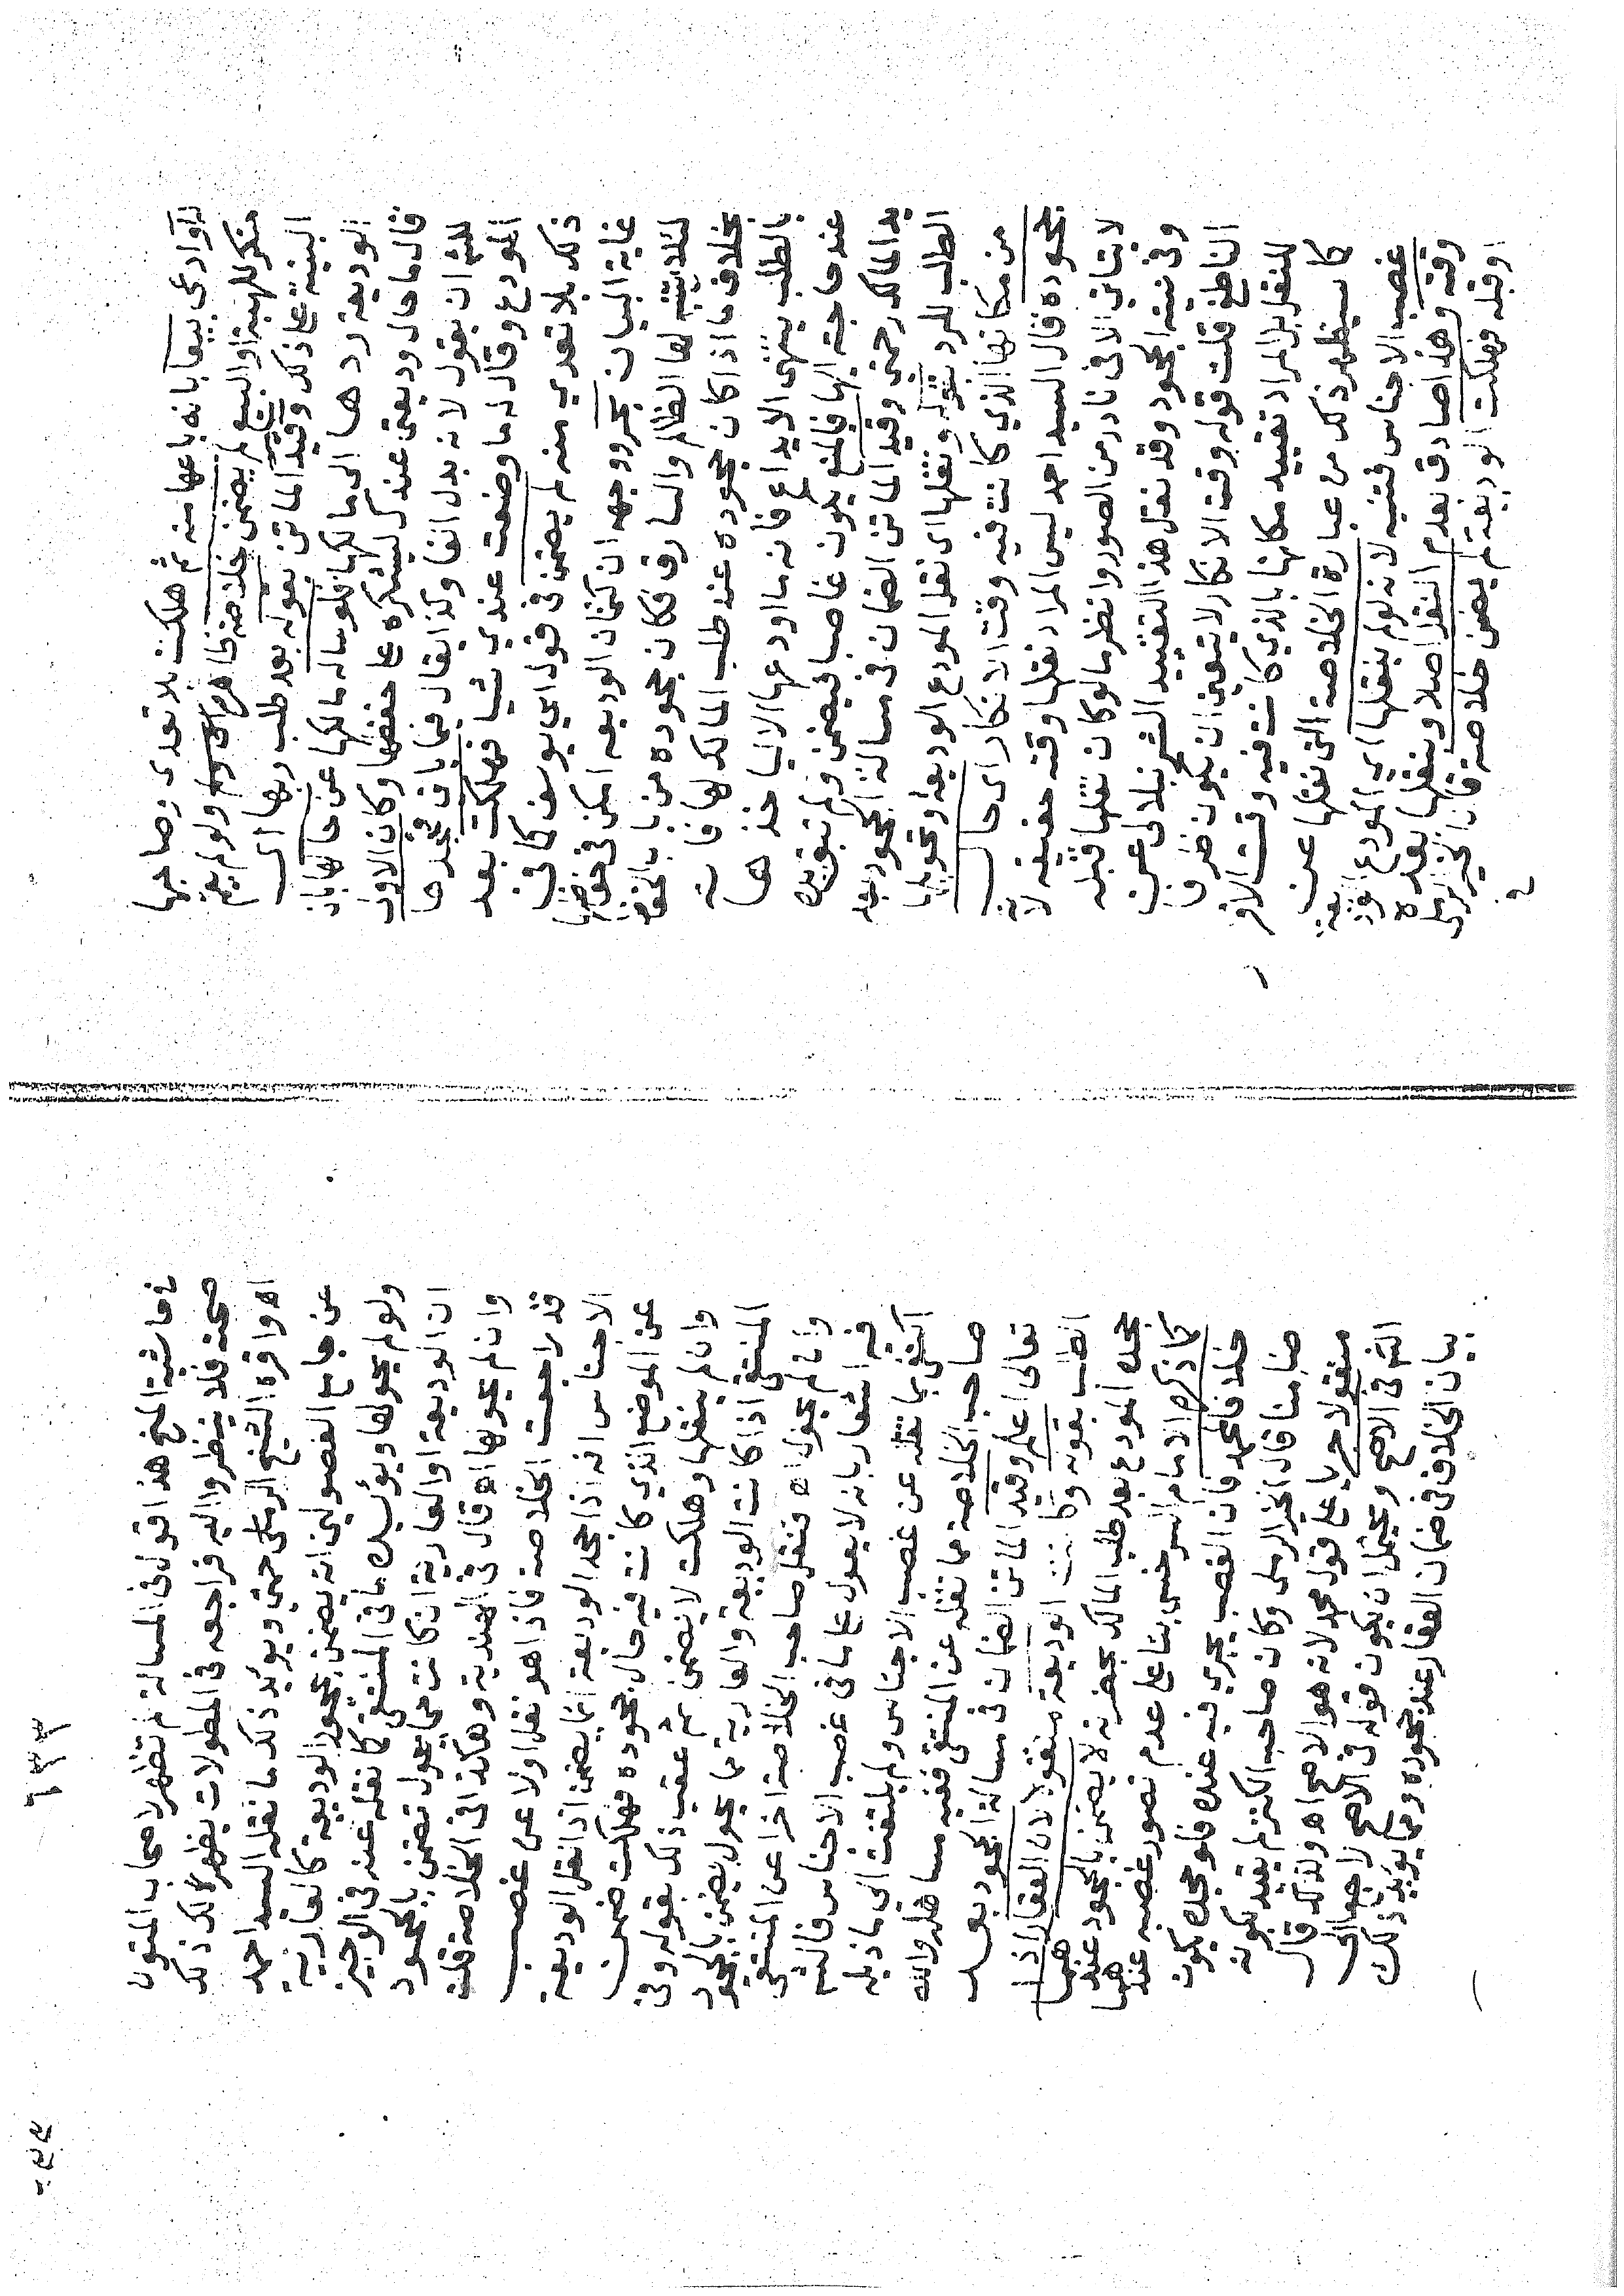 او ادعى بيعا بانه باعها منه ثم هلكت بلا تعدى وصاحبها
منكر للهبة او البيع لم يضمن خلاصة ظاهره اى ولو لم يقم
البينة على ذلك وقيد الماتن بقوله بعد طلب ربها اى
الوديعة ردها الى مالكها فلو ساله مالكها عن حالها بان
قال ما حال وديعتى عندك ليشكره على حفظها وكان الاولى
للم ان يقول لانه بدل انفا وكذا يقال فيما ياتى فجحدها
المودع وقال له ما وضعت عندي شيا فهلكت بعد
ذلك بلا تعدي منه لم يضمن فى قول ابي يوسف كما فى
غاية البيان بحر ووجهه ان كتمان الوديعه امكن فى حفظها
لئلا يتنبه لها الظالم والسارق فكان جحوده من باب الحفظ
بخلاف ما اذا كان جحوده عند طلب المالك لها فانه
بالطلب ينتهى الايداع فانه ما اودعها الا لياخذها
عند حاجته اليها فالمنع يكون غاصبا فيضمن ولم تبق يده
يد المالك رحمتى وقيد الماتن الضمان فى مسالة الجحود بعد
الطلب للرد بقوله ونقلها اى نقل المودع الوديعة وتحويلها
من مكانها الذي كانت فيه وقت الانكار اى حال
جحوده قال السيد احمد ليس المراد نقلها وقته حقيقة لانه
لا يتاتى الا فى نادر من الصور وانظر ما لو كان نقلها قبله
وفى نيته الجحود وقد نقل هذا التقييد الشرنبلالى عن
الناطفى قلت قوله وقت الانكار لا يتعين ان يكون ظرفا
للنقل بل المراد تقييد مكانها بالذي كانت فيه وقت الانكار
كما سيظهر ذلك من عبارة الخلاصة التى نقلها عن
غصب الاجناس فتنبه لانه لو لم ينقلها اي المودع الوديعة
وقته وهذا صادق بعدم النقل اصلا وبنقلها بعده
او قبله فهلكت الوديعة لم يضمن خلاصة قال الخير الرملى
٦٣٣
فى حاشية المنح هذا قول فى المسالة لم تظهر لاصحاب المتون
صحته فلا ينظروا اليه فراجعه فى المطولات يظهر لك ذلك
اه واقره الشيخ الرملى رحمتى ويؤيد ذلك ما نقله السيد احمد
عن جامع الفصولين انه يضمن بجحود الوديعة كالعارية
ولو لم يحولها ويؤيده ما فى المنتقى كما نقله عنه فى الوجيز
ان الوديعة او العارية ان كانت مما يحول تضمن بالجحود
وان لم يحولها اه قال فى الهندية وهكذا فى الخلاصة قلت
قد راجعت الخلاصة فاذا هو نقل اولا عن غصب
الاجناس انه اذا جحد الوديعة انما يضمن اذا نقل الوديعة
عن الموضع الذي كانت فيه حال جحوده فهلكت ضمن
وان لم ينقلها وهلكت لا يضمن ثم عقب ذلك بقوله وفى
المنتقى اذا كانت الوديعة والعارية مما يحول يضمن بالجحود
وان لم يحول اه فنقل صاحب الخلاصة اخرا عن المنتقى
فيه اشعار بانه لا يعول على ما فى غصب الاجناس فالشم
اكتفى بما نقله عن غصب الاجناس ولم يلتفت الى ما ذيله
صاحب الخلاصة مما نقله عن المنتقى ففيه مساهلة والله
تعالى اعلم وقيد الماتن الضمان فى مسالة الجحود بعد
الطلب بقوله وكانت الوديعة منقولا لان العقار اذا
جحده المودع بعد طلب المالك بحضرته لا يضمن بالجحود عندهما
كما ذكره الامام السرخسى بناء على عدم تصور غصبه عندهما
خلافا لمحمد فان الغصب يجري فيه عنده فلو جحده يكون
ضامنا قال الخير الرملى وكان صاحب الكنز لم يقيد بكونه
منقولا جريا على قول محمد لانه هو الاصح اه ولذلك قال
الشم فى الاصح ويحتمل ان يكون قوله فى الاصح راجعا الى
بيان الخلاف فى ضمان العقار عند جحوده ومما يؤيد ذلك